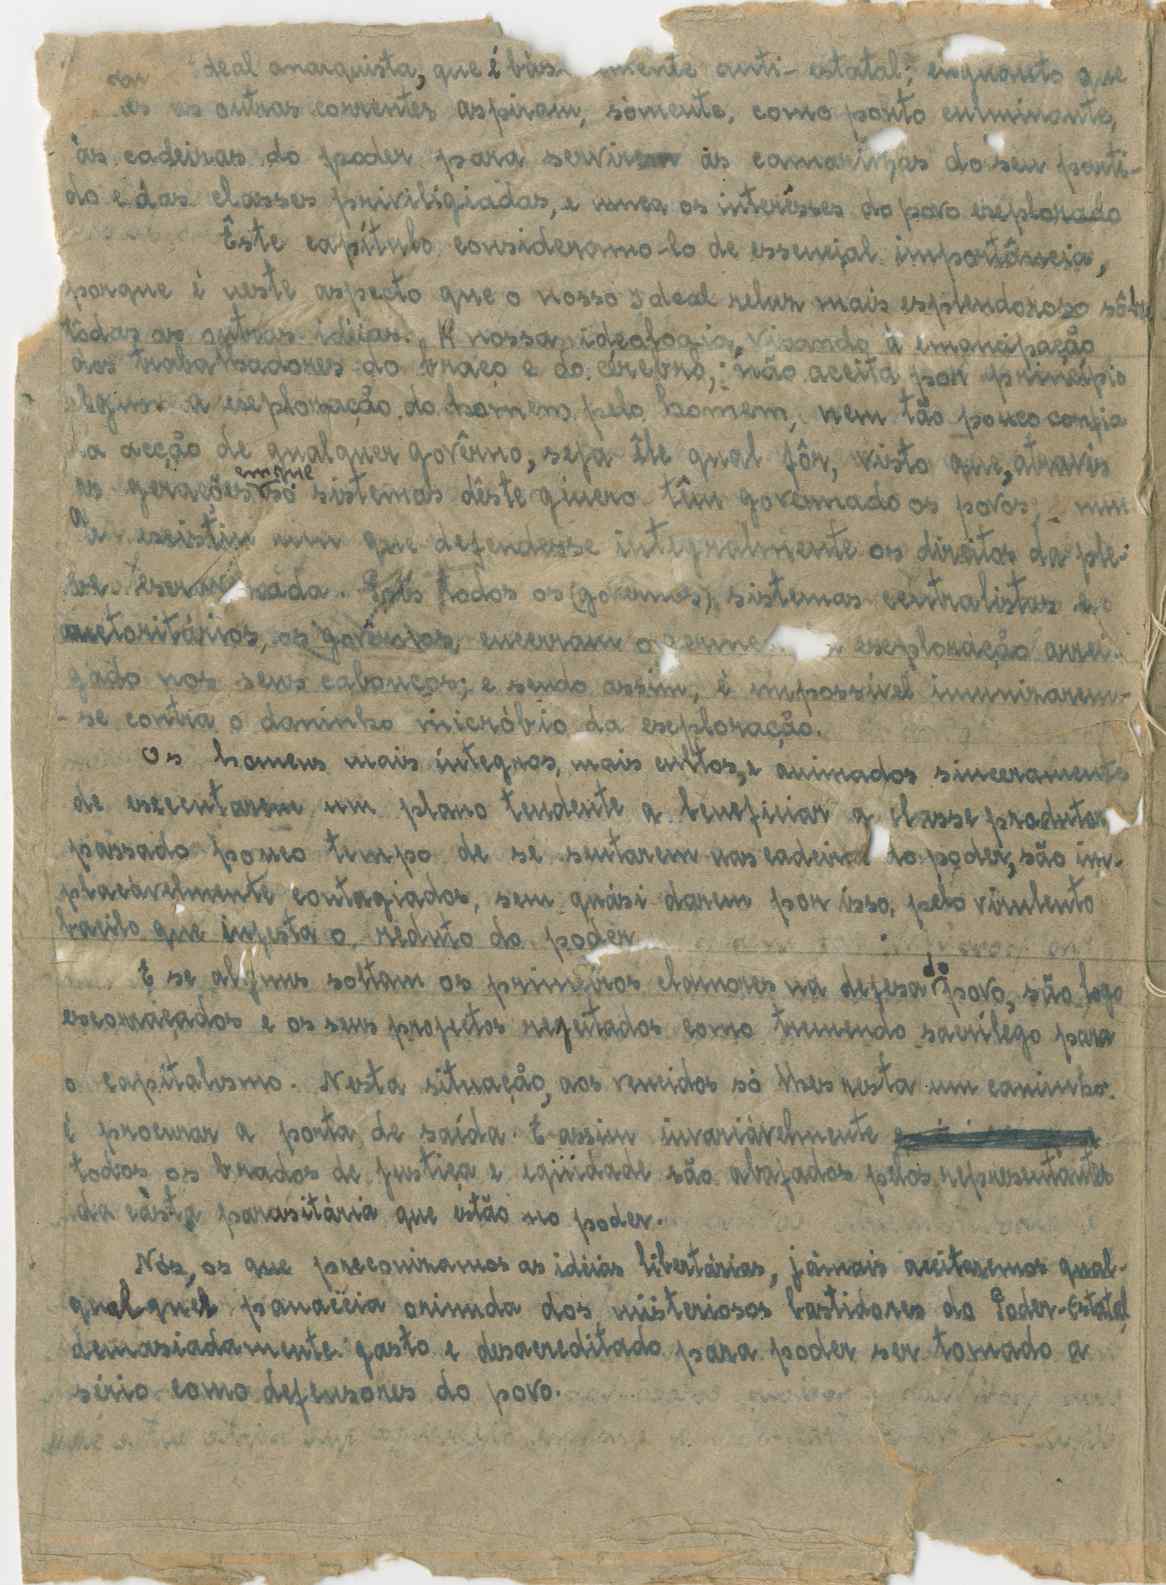 deal anarquista, que é bás mente anti-estatal; enquanto que
as outras correntes aspiram, sòmente, como ponto culminante,
às cadeiras do poder para servirem às camarinhas do seu parti-
do e das classes priviligiadas, e nunca os interêsses do povo explorado
Êste capítulo consideramo-lo de essencial importância,
porque é neste aspecto que o nosso ideal reluz mais esplendoroso sôbre
tôdas as outras idéias. A nossa ideologia, visando à emancipação
dos trabalhadores do braço e do cérebro, não aceita por princípio
algum a exploração do homem pelo homem, nem tão pouco confia
na acção de qualquer govêrno, seja êle qual fôr, visto que, através
as gerações em que só sistemas dêste género têm governado os povos, nun
ca existiu um que defendesse integralmente os direitos da ple-
be escravizada. todos os (governos), sistemas centralistas e
autoritários, os governos, encerram o germe exploração arrei-
gado nos seus caboucos; e sendo assim, é impossível imunizarem-
-se contra o daninho micróbio da exploração.
Os homens mais íntegros, mais cultos, e animados sinceramente
de executarem um plano tendente a beneficiar a classe produtora
passado pouco tempo de se sentarem nas cadeiras do poder, são im-
placàvelmente contagiados, sem quási darem por isso, pelo virulento
bacilo que infesta o reduto do poder
E se alguns soltam os primeiros clamores na defesa do povo, são logo
escorraçados e os seus projectos rejeitados como tremendo sacrílego para
o capitalismo. Nesta situação, aos vencidos só lhes resta um caminho:
é procurar a porta de saída. E assim invariàvelmente
todos os brados de justiça e eqüidade são abafados pelos representantes
da casta parasitária que estão no poder.
Nós, os que preconizamos as idéias libertárias, jámais aceitaremos qual-
qualquel panacéia oriunda dos misteriosos bastidores do Poder-Estatal,
demasiadamente gasto e desacreditado para poder ser tomado a
sério como defensores do povo.